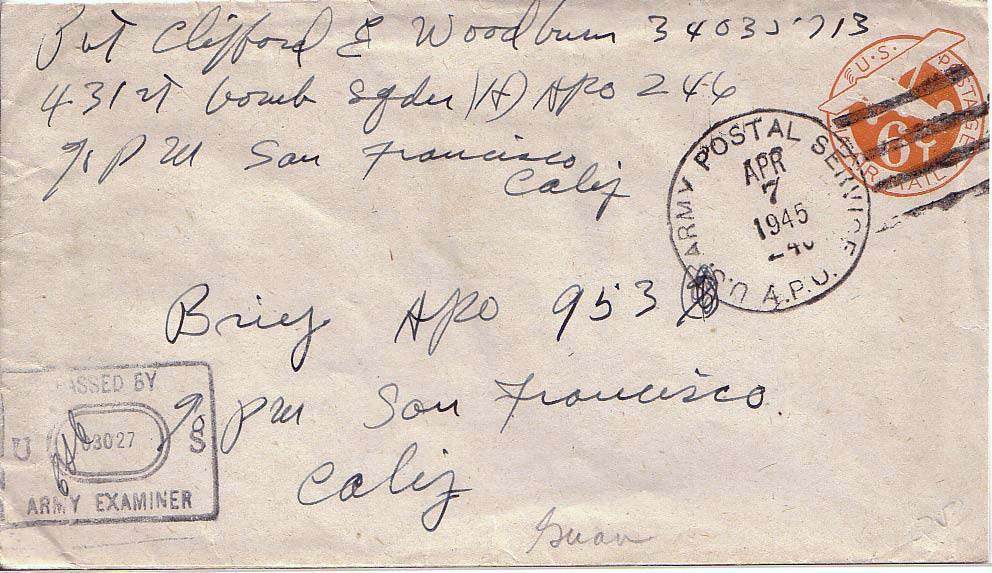 Pvt Clifford E Woodburn 34035713
431st bomb Sqdr (H) APO 246
% P M San Francisco
Calif
U.S. POSTAGE
6¢
AIR MAIL
ARMY POSTAL SERVICE
APR
7
1945
A.P.O.
Brief APO 953
% P M San Francisco.
Calif
PASSED BY
U 03027 S
ARMY EXAMINER
Guam